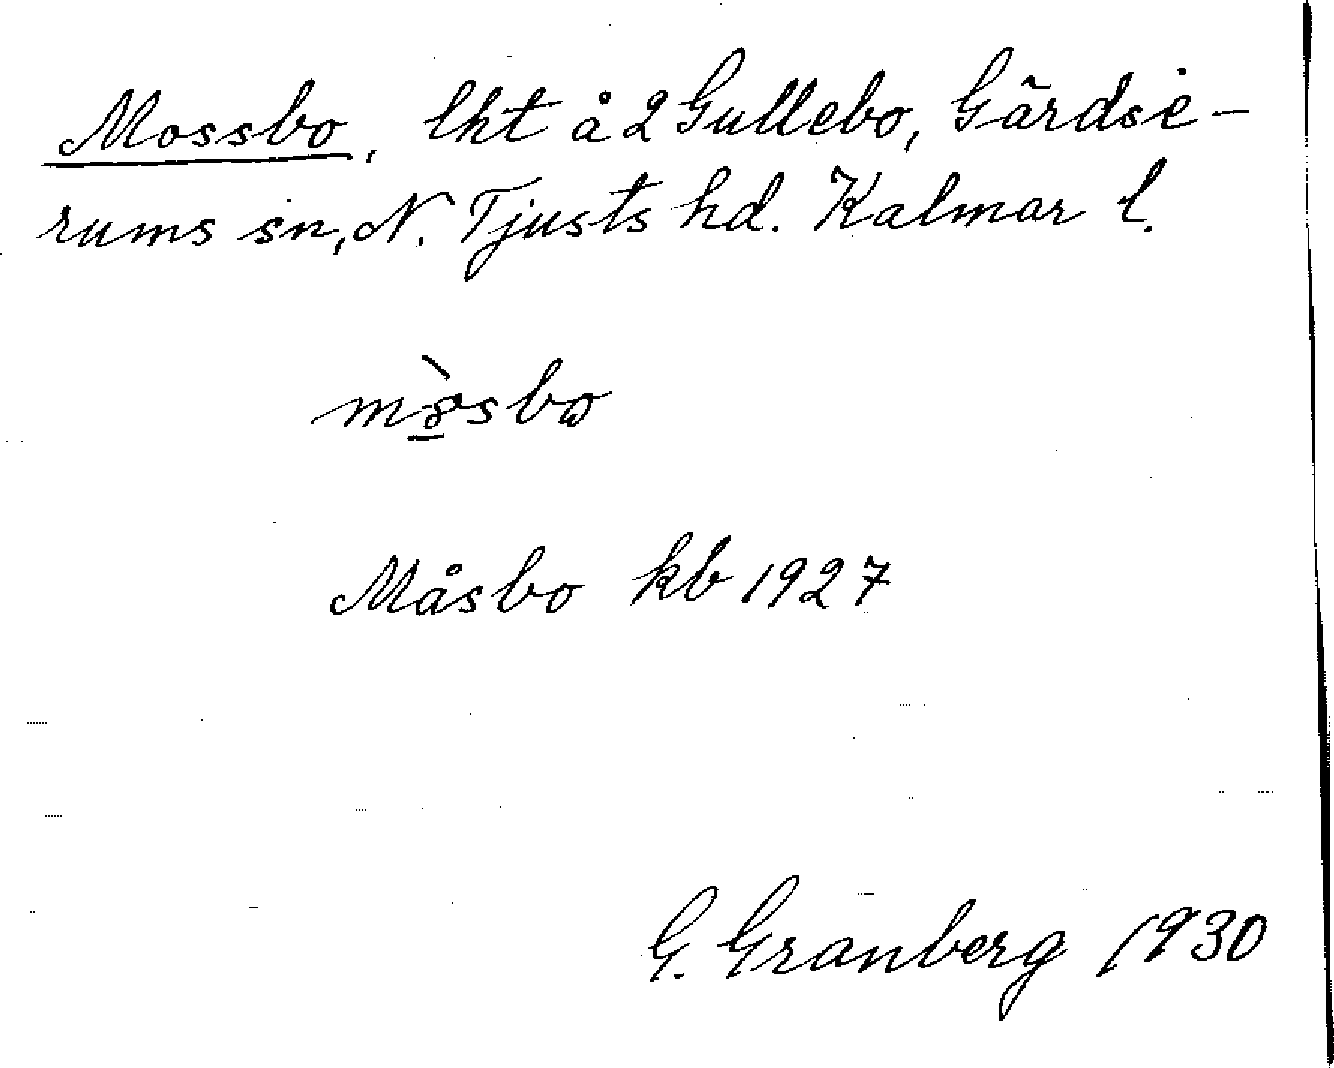 Mossbo, lht å 2 Gullebo, Gärdse-
rums sn, N. Tjusts hd. Kalmar l.
Måsbo kb 1927
G. Granberg 1930